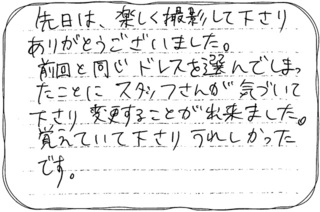 先日は、楽しく撮影して下さり
ありがとうございました。
前回と同じドレスを選んでしまっ
たことにスタッフさんが気づいて
下さり変更することが出来ました。
覚えていて下さりうれしかった
です。